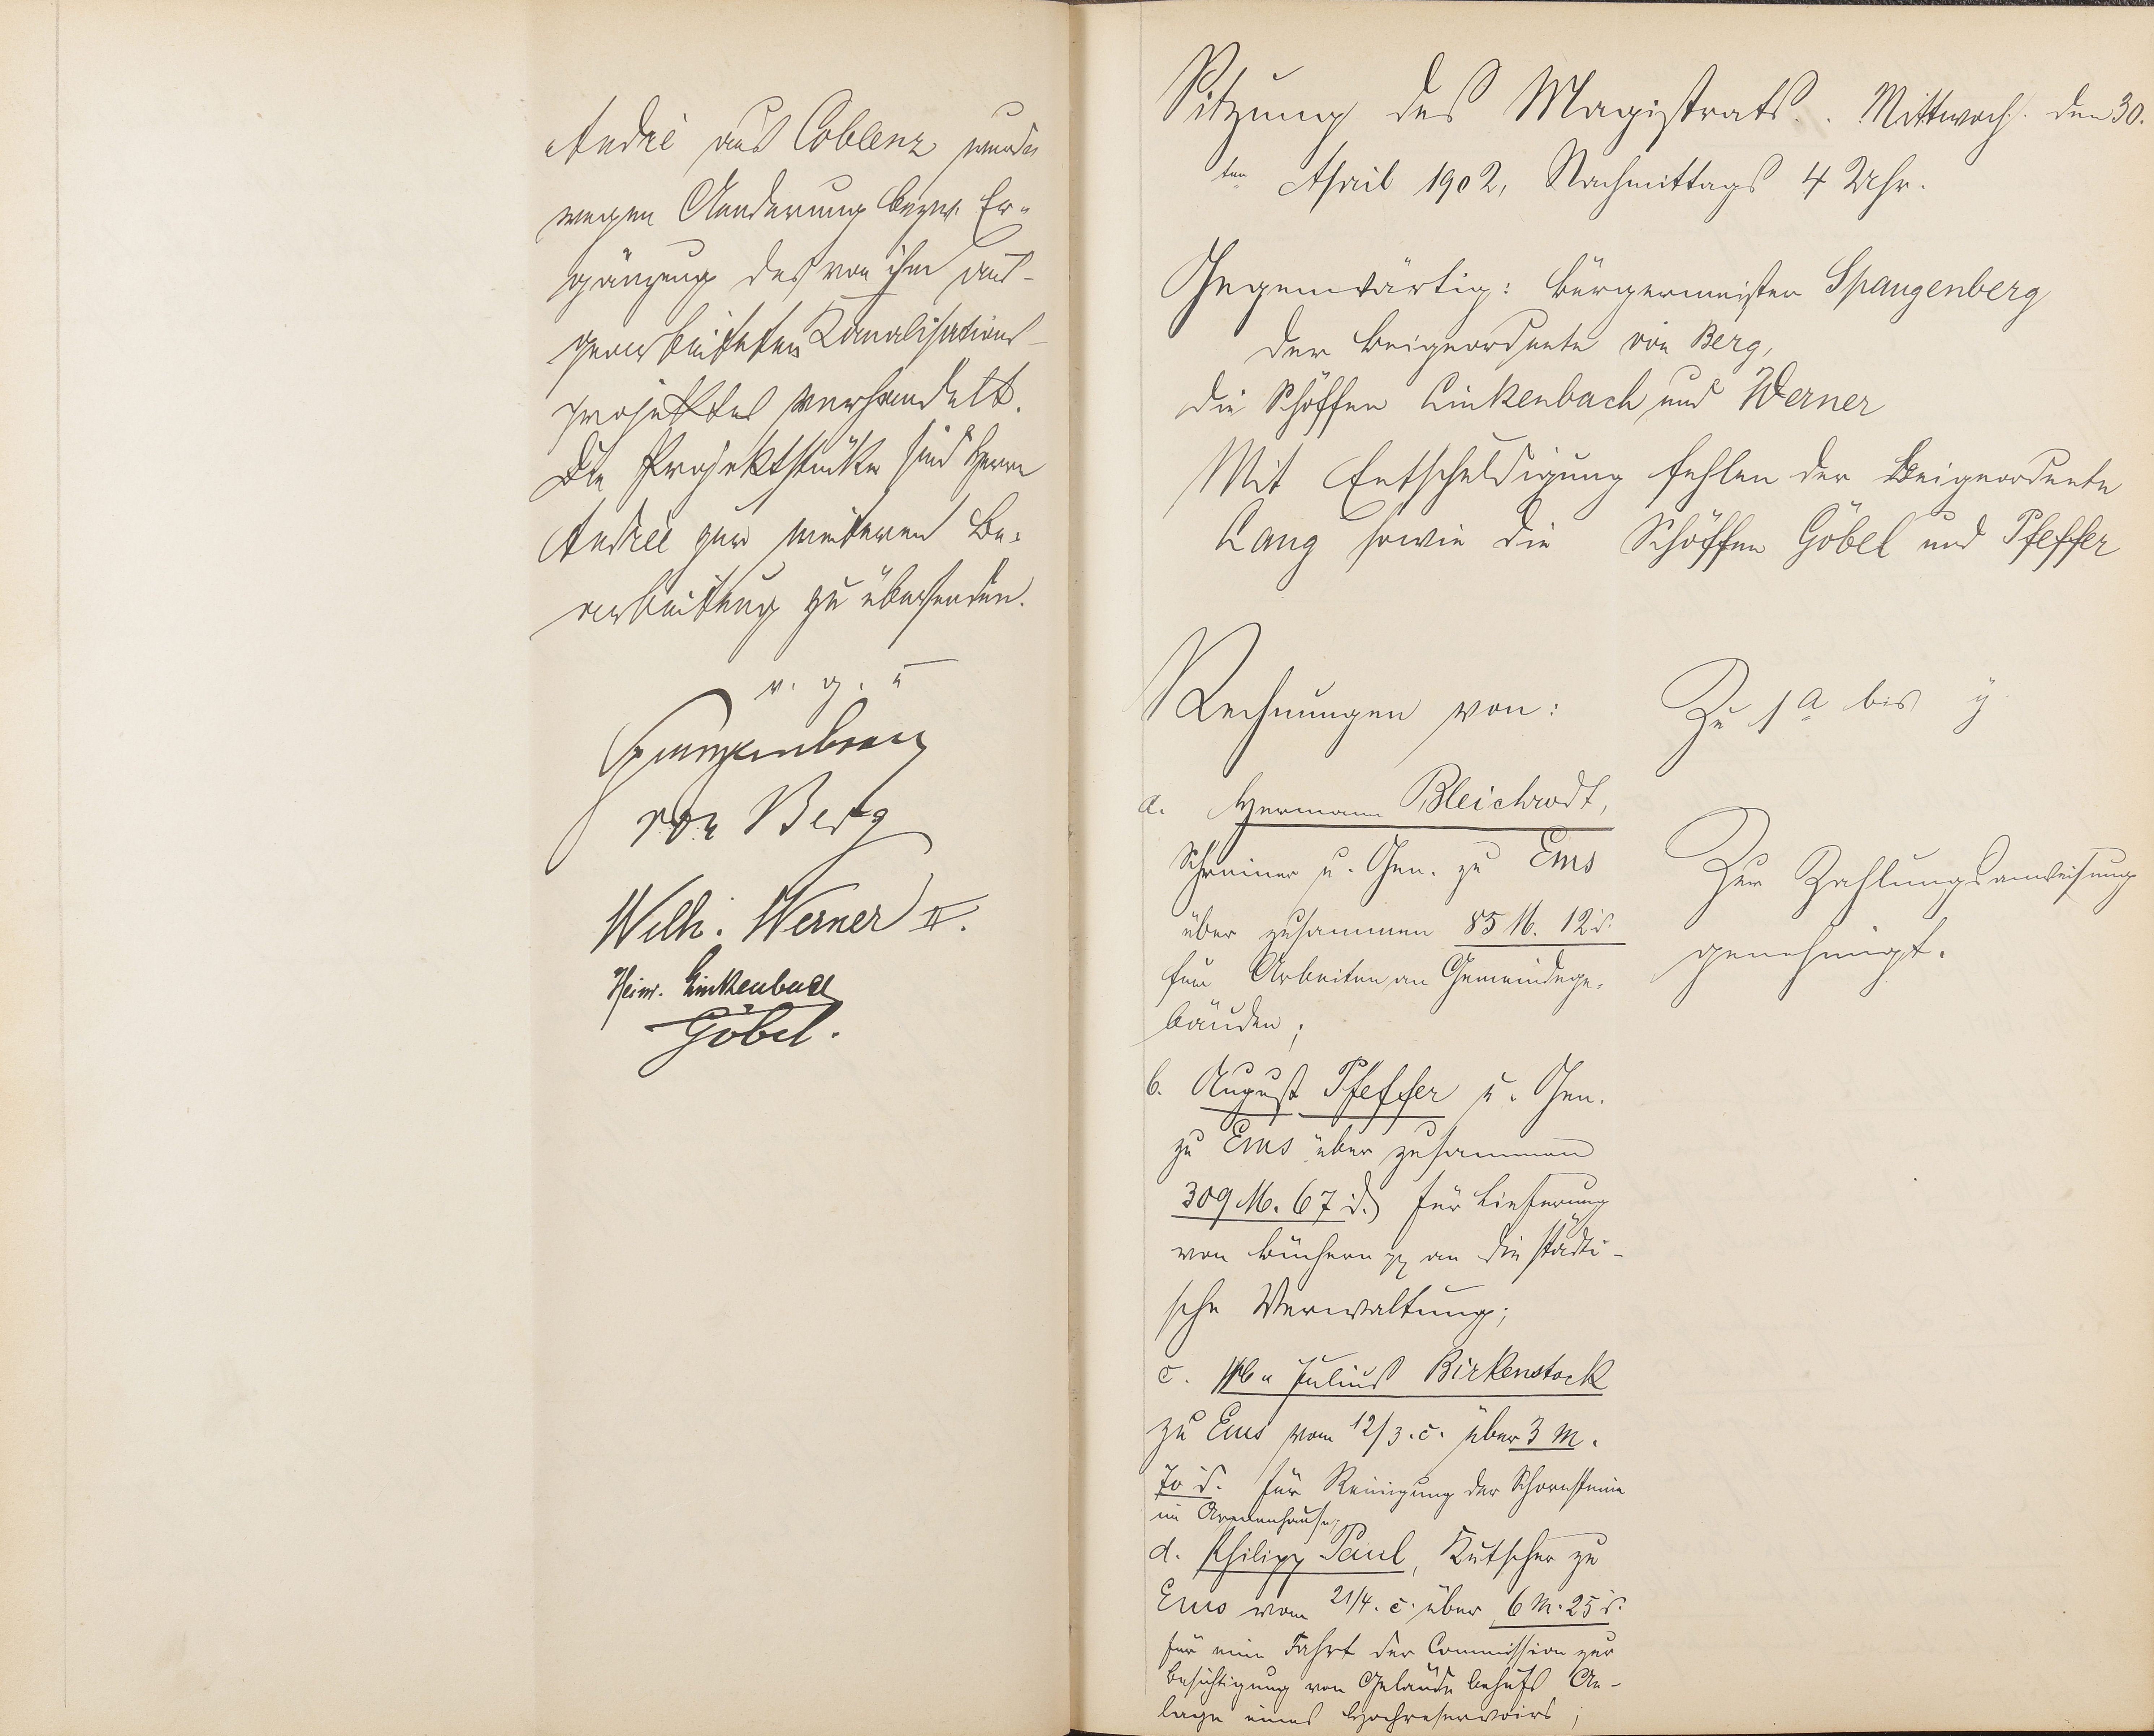 André aus Coblenz wurde
wegen Aenderung bezw. Er-
gänzung des von ihm aus-
gearbeiteten Kanalisations-
projektes verhandelt.
Die Projektstücke sind Herrn
André zur weiteren Be-
arbeitung zu übersenden.
v. g. u
Spangenberg
von Berg
Wilh. Werner II.
Heinr. Linkenbach
Göbel.
Sitzung des Magistrats. Mittwoch. den 30.
ten April 1902, Nachmittags 4 Uhr.
Gegenwärtig: Bürgermeister Spangenberg
der Beigeordnete von Berg,
die Schöffen Linkenbach und Werner
Mit Entschuldigung fehlen der Beigeordnete
Lang sowie die Schöffen Göbel und Pfeffer
Rechnungen von:
a. Hermann Bleichrodt,
Schreiner u. Gen. zu Ems
über zusammen 85 M. 12 d.
für Arbeiten an Gemeindege-
bäuden;
b. August Pfeffer u. Gen.
zu Ems über zusammen
309 M. 67 d. für Lieferung
von Büchern pp an die städti-
sche Verwaltung;
c. Julius Birkenstock
zu Ems vom 12/3. c. über 3 M.
70 d. für Reinigung der Schornsteine
im Armenhause;
d. Philipp Paul, Kutscher zu
Ems vom 21/4. c. über 6 M. 25 d.
für eine Fahrt der Commission zur
Besichtigung von Gelände behufs An-
lage eines Hochreservoirs;
Zu 1 a bis y
Zur Zahlungsanweisung
genehmigt.